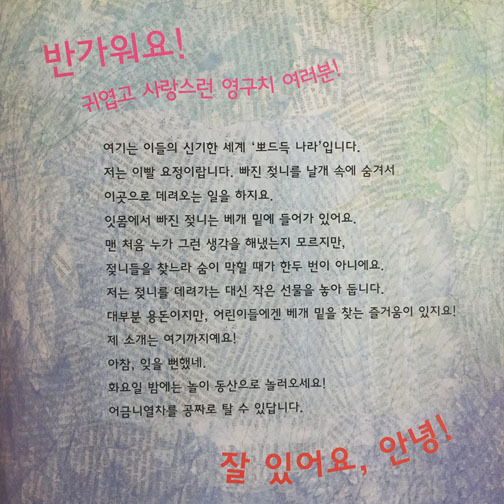 반가워요!
귀엽고 사랑스런 영구치 여러분!
여기는 이들의 신기한 세계 '뽀드득 나라'입니다.
저는 이빨 요정이랍니다. 빠진 젖니를 날개 속에 숨겨서
이곳으로 데려오는 일을 하지요.
잇몸에서 빠진 젖니는 베개 밑에 들어가 있어요.
맨 처음 누가 그런 생각을 해냈는지 모르지만,
젖니들을 찾느라 숨이 막힐 때가 한두 번이 아니에요.
저는 젖니를 데려가는 대신 작은 선물을 놓아 둡니다.
대부분 용돈이지만, 어린이들에겐 베개 밑을 찾는 즐거움이 있지요!
제 소개는 여기까지예요!
아참, 잊을 뻔했네.
화요일 밤에는 놀이 동산으로 놀러오세요!
어금니열차를 공짜로 탈 수 있답니다.
잘 있어요, 안녕!